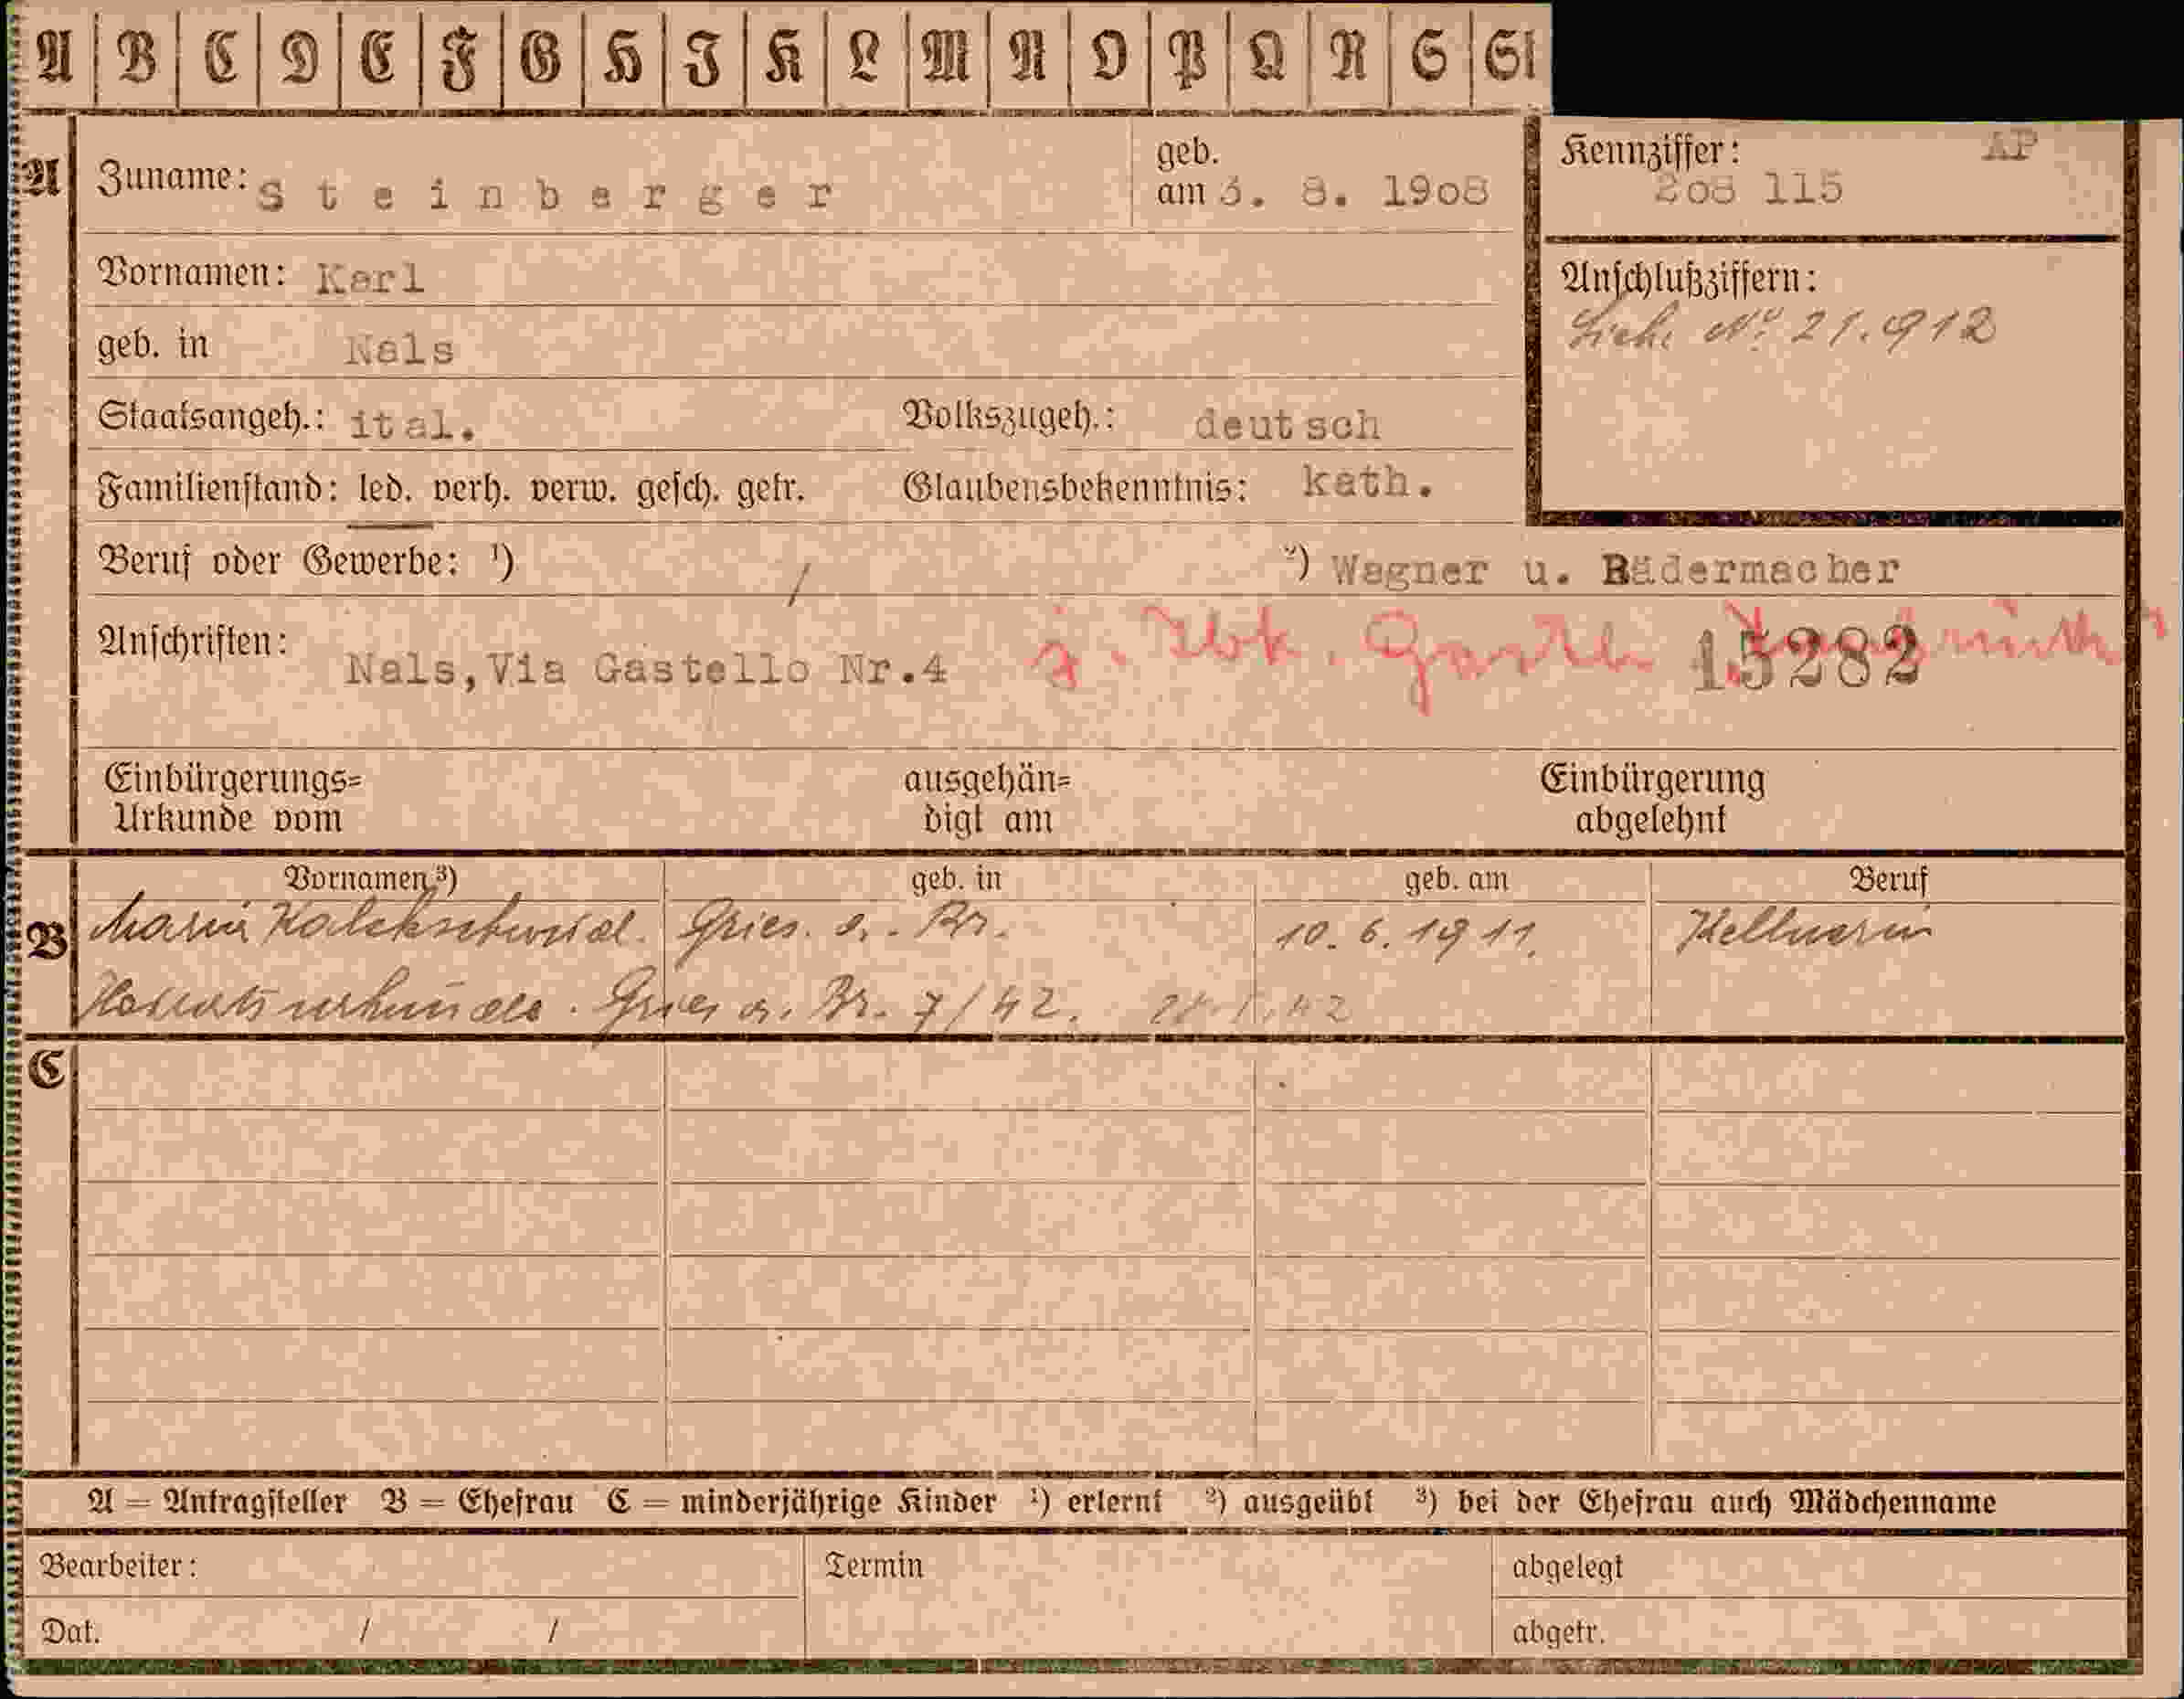 A B C D E F G H I K L M N O P Q R S St
A Zuname: Steinberger geb. am 3. 8. 1908 Kennziffer: AP 208 115
Vornamen: Karl Anschlußziffern:
geb. in Nals Siehe Nº 21.912
Staatsangeh.: ital. Volkszugeh.: deutsch
Familienstand: led. verh. verw. gesch. getr. Glaubensbekenntnis: kath.
Beruf oder Gewerbe: ¹) / ²) Wagner u. Rädermacher
Anschriften: Nals, Via Gastello Nr.4 z. Ibk. 15282
Einbürgerungs= ausgehän= Einbürgerung
Urkunde vom digt am abgelehnt
Vornamen ³) geb. in geb. am Beruf
B Maria Gries. a. Br. 10. 6. 1911. Kellnerin
Heiratsurkunde. Gries a. Br. 7/42.
C
A = Antragsteller B = Ehefrau C = minderjährige Kinder ¹) erlernt ²) ausgeübt ³) bei der Ehefrau auch Mädchenname
Bearbeiter: Termin abgelegt
Dat. / / abgetr.